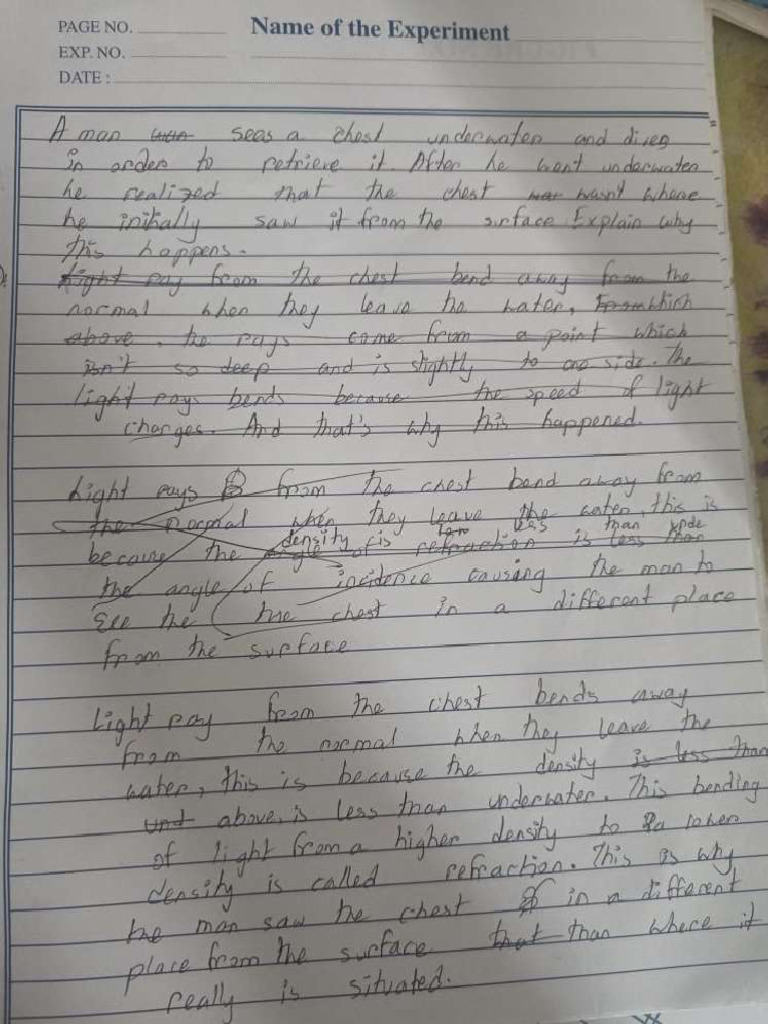 PAGE NO.
Name of the Experiment
EXP. NO.
DATE :
A man seas a chest underwater and dives
in order to retrieve it. After he went underwater
he realized that the chest wasn't where
he initially saw it from the surface. Explain why
this happens.
Light ray from the chest bend away from the
normal when they leave the water, From which
above, the rays come from a point which
isn't so deep and is slightly to one side. The
light rays bends because the speed of light
changes. And that's why this happened.
Light rays from the chest bend away from
the normal when they leave the water, this is
density is less than
because the angle of refraction is less than
the angle of incidence causing the man to
see the the chest in a different place
from the surface
Light ray from the chest bends away
from the normal when they leave the
water, this is because the density is less than
above, is less than underwater. This bending
of light from a higher density to a lower
density is called refraction. This is why
the man saw the chest in a different
place from the surface that than where it
really is situated.